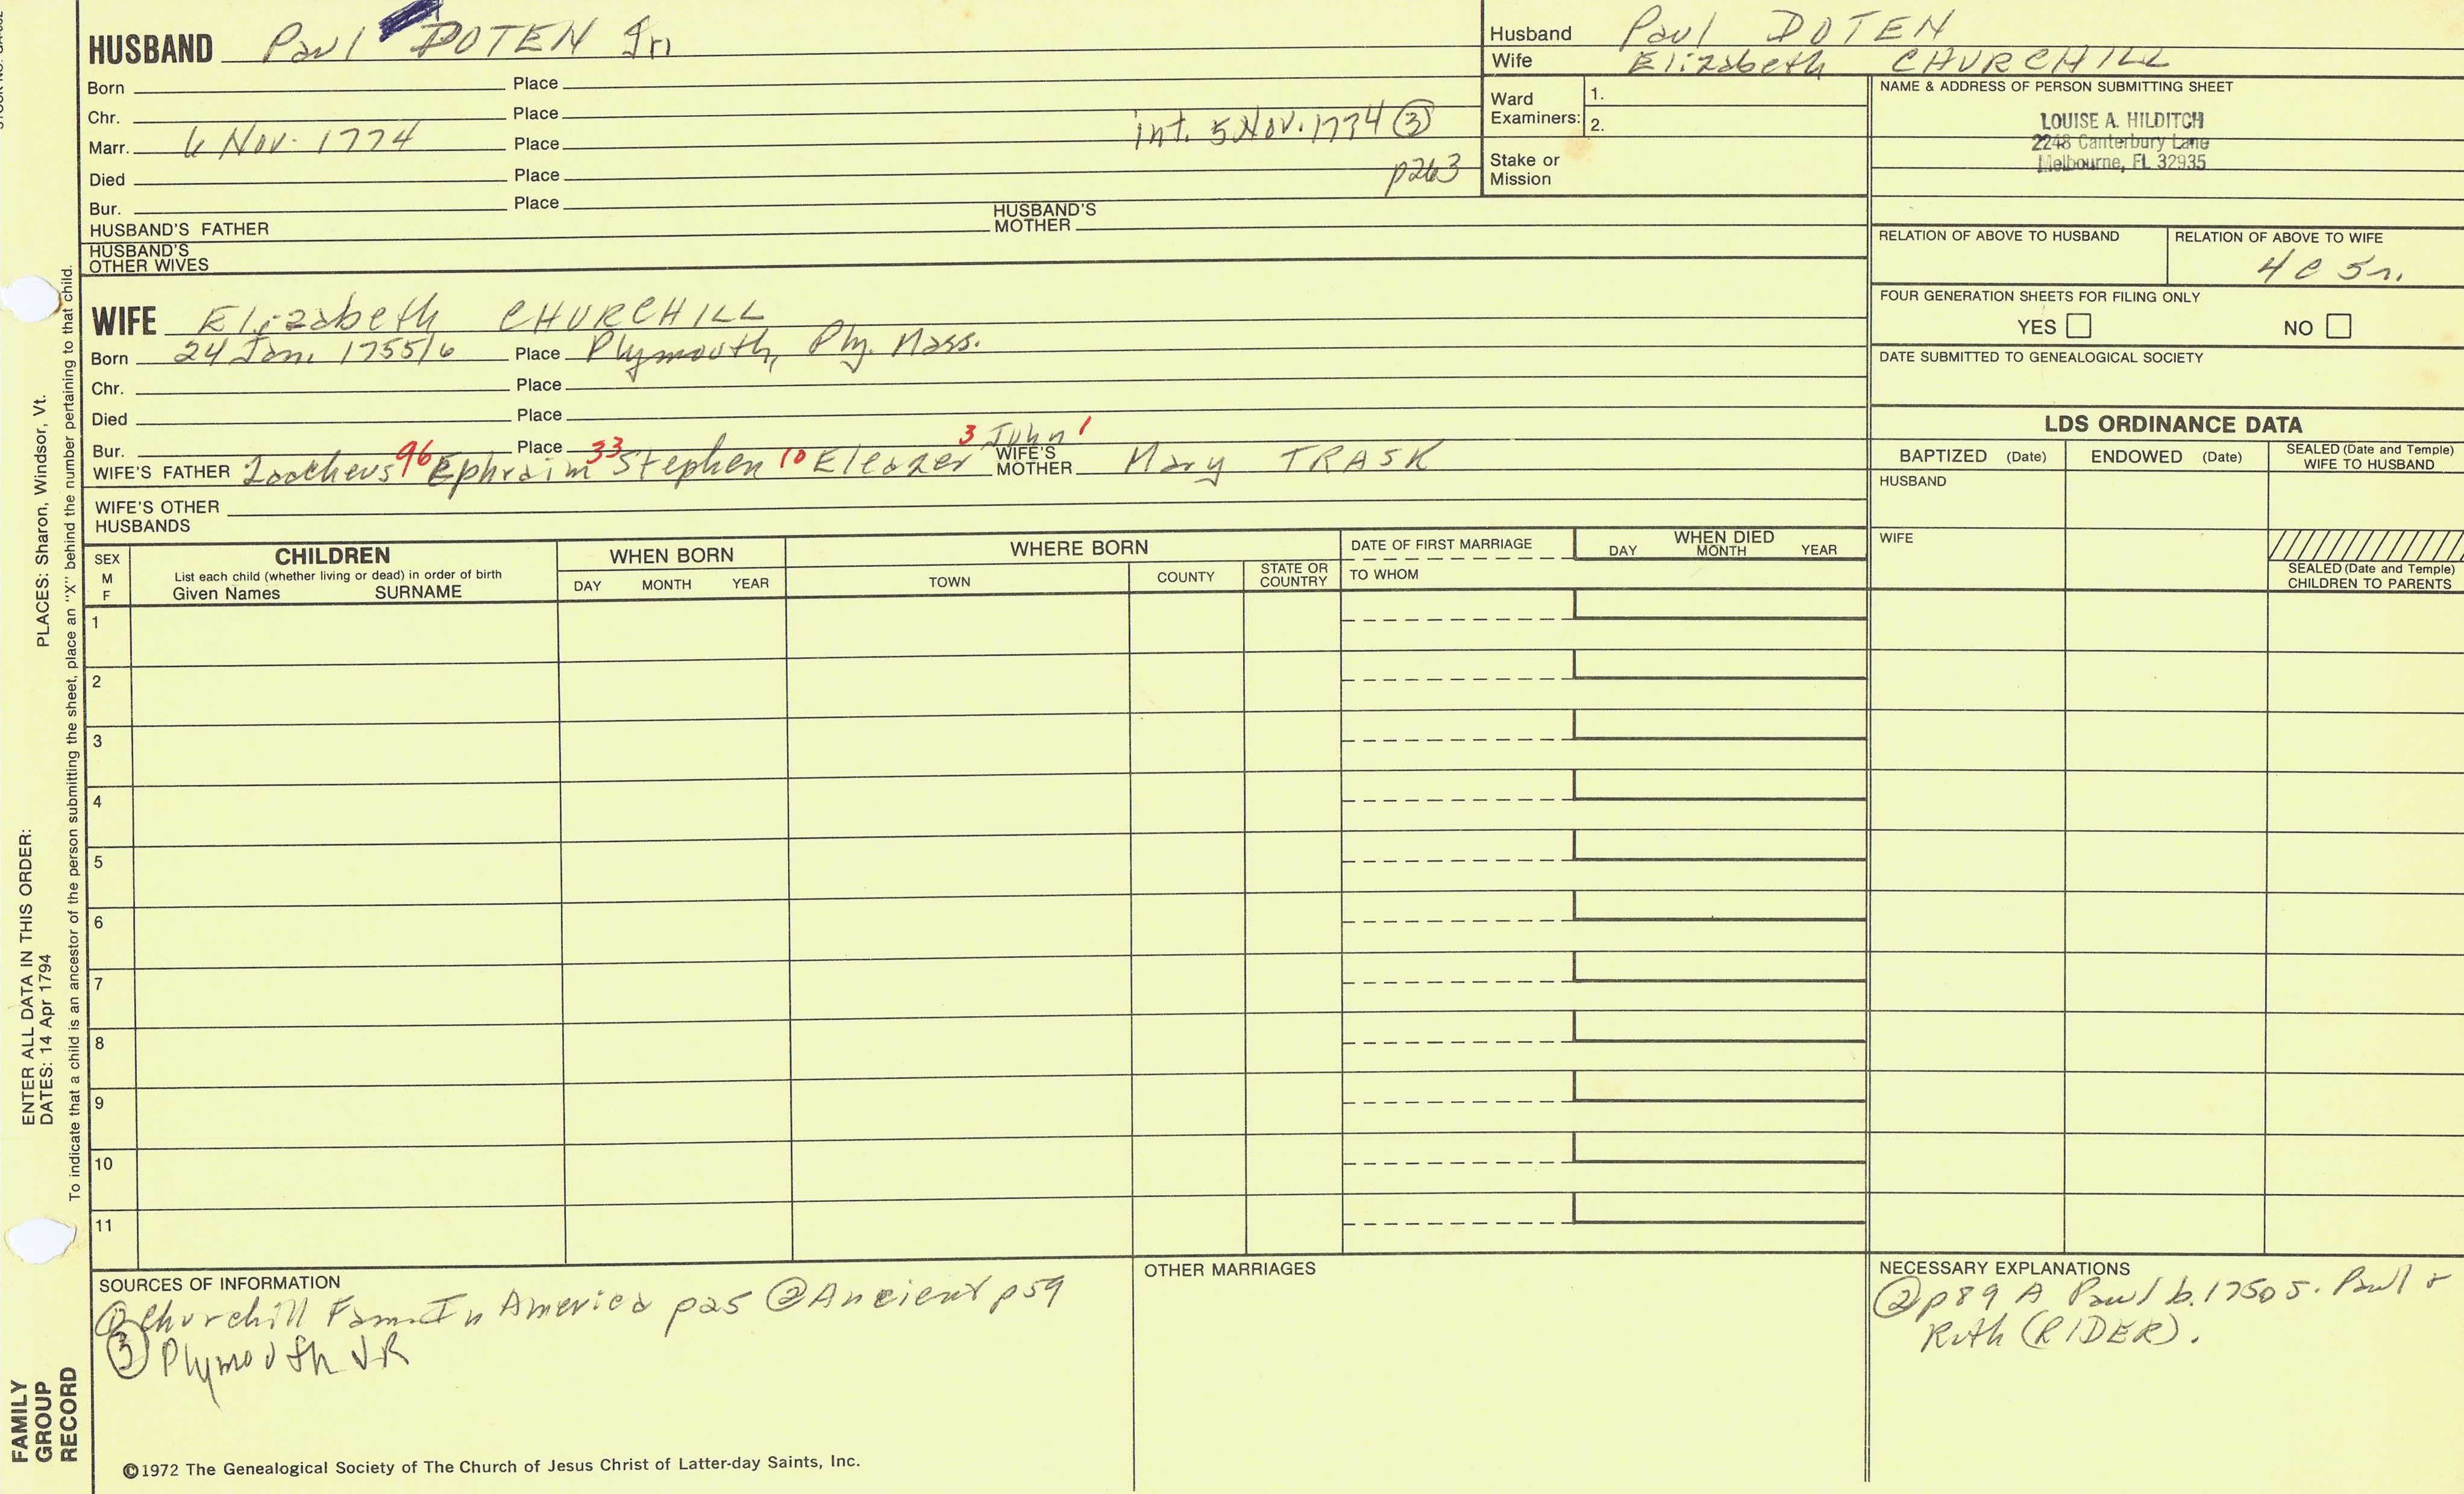 HUSBAND Paul DOTEN Jn
Born Place
Chr. Place
Marr. 6 Nov. 1774 Place int. 5 Nov. 1774 ③
Died Place p263
Bur. Place
HUSBAND'S FATHER HUSBAND'S MOTHER
HUSBAND'S OTHER WIVES
Husband Paul DOTEN
Wife Elizabeth CHURCHILL
Ward Examiners: 1.
2.
Stake or Mission
NAME & ADDRESS OF PERSON SUBMITTING SHEET
LOUISE A. HILDITCH
2248 Canterbury Lane
Melbourne, FL 32935
RELATION OF ABOVE TO HUSBAND
RELATION OF ABOVE TO WIFE
4 C 5 r.
FOUR GENERATION SHEETS FOR FILING ONLY
YES NO
DATE SUBMITTED TO GENEALOGICAL SOCIETY
WIFE Elizabeth CHURCHILL
Born 24 Jan. 1755/6 Place Plymouth, Ply. Mass.
Chr. Place
Died Place
Bur. Place
WIFE'S FATHER Zaccheus 96 Ephraim 33 Stephen 10 Eleazer 3 John 1 WIFE'S MOTHER Mary TRASK
WIFE'S OTHER HUSBANDS
LDS ORDINANCE DATA
BAPTIZED (Date) ENDOWED (Date) SEALED (Date and Temple) WIFE TO HUSBAND
HUSBAND
WIFE
SEALED (Date and Temple) CHILDREN TO PARENTS
SEX M F
CHILDREN
List each child (whether living or dead) in order of birth
Given Names SURNAME
WHEN BORN
DAY MONTH YEAR
WHERE BORN
TOWN COUNTY STATE OR COUNTRY
DATE OF FIRST MARRIAGE
TO WHOM
WHEN DIED
DAY MONTH YEAR
1
2
3
4
5
6
7
8
9
10
11
SOURCES OF INFORMATION
① Churchill Fam. In America p25 ② Ancient p59
③ Plymouth VR
OTHER MARRIAGES
NECESSARY EXPLANATIONS
② p89 A Paul b. 1750 S. Paul +
Ruth (RIDER).
©1972 The Genealogical Society of The Church of Jesus Christ of Latter-day Saints, Inc.
ENTER ALL DATA IN THIS ORDER:
DATES: 14 Apr 1794 PLACES: Sharon, Windsor, Vt.
To indicate that a child is an ancestor of the person submitting the sheet, place an "X" behind the number pertaining to that child.
FAMILY
GROUP
RECORD